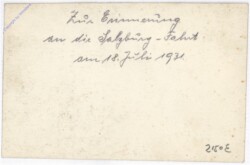 Zur Erinnerung
an die Salzburg-Fahrt
am 18. Juli 1931